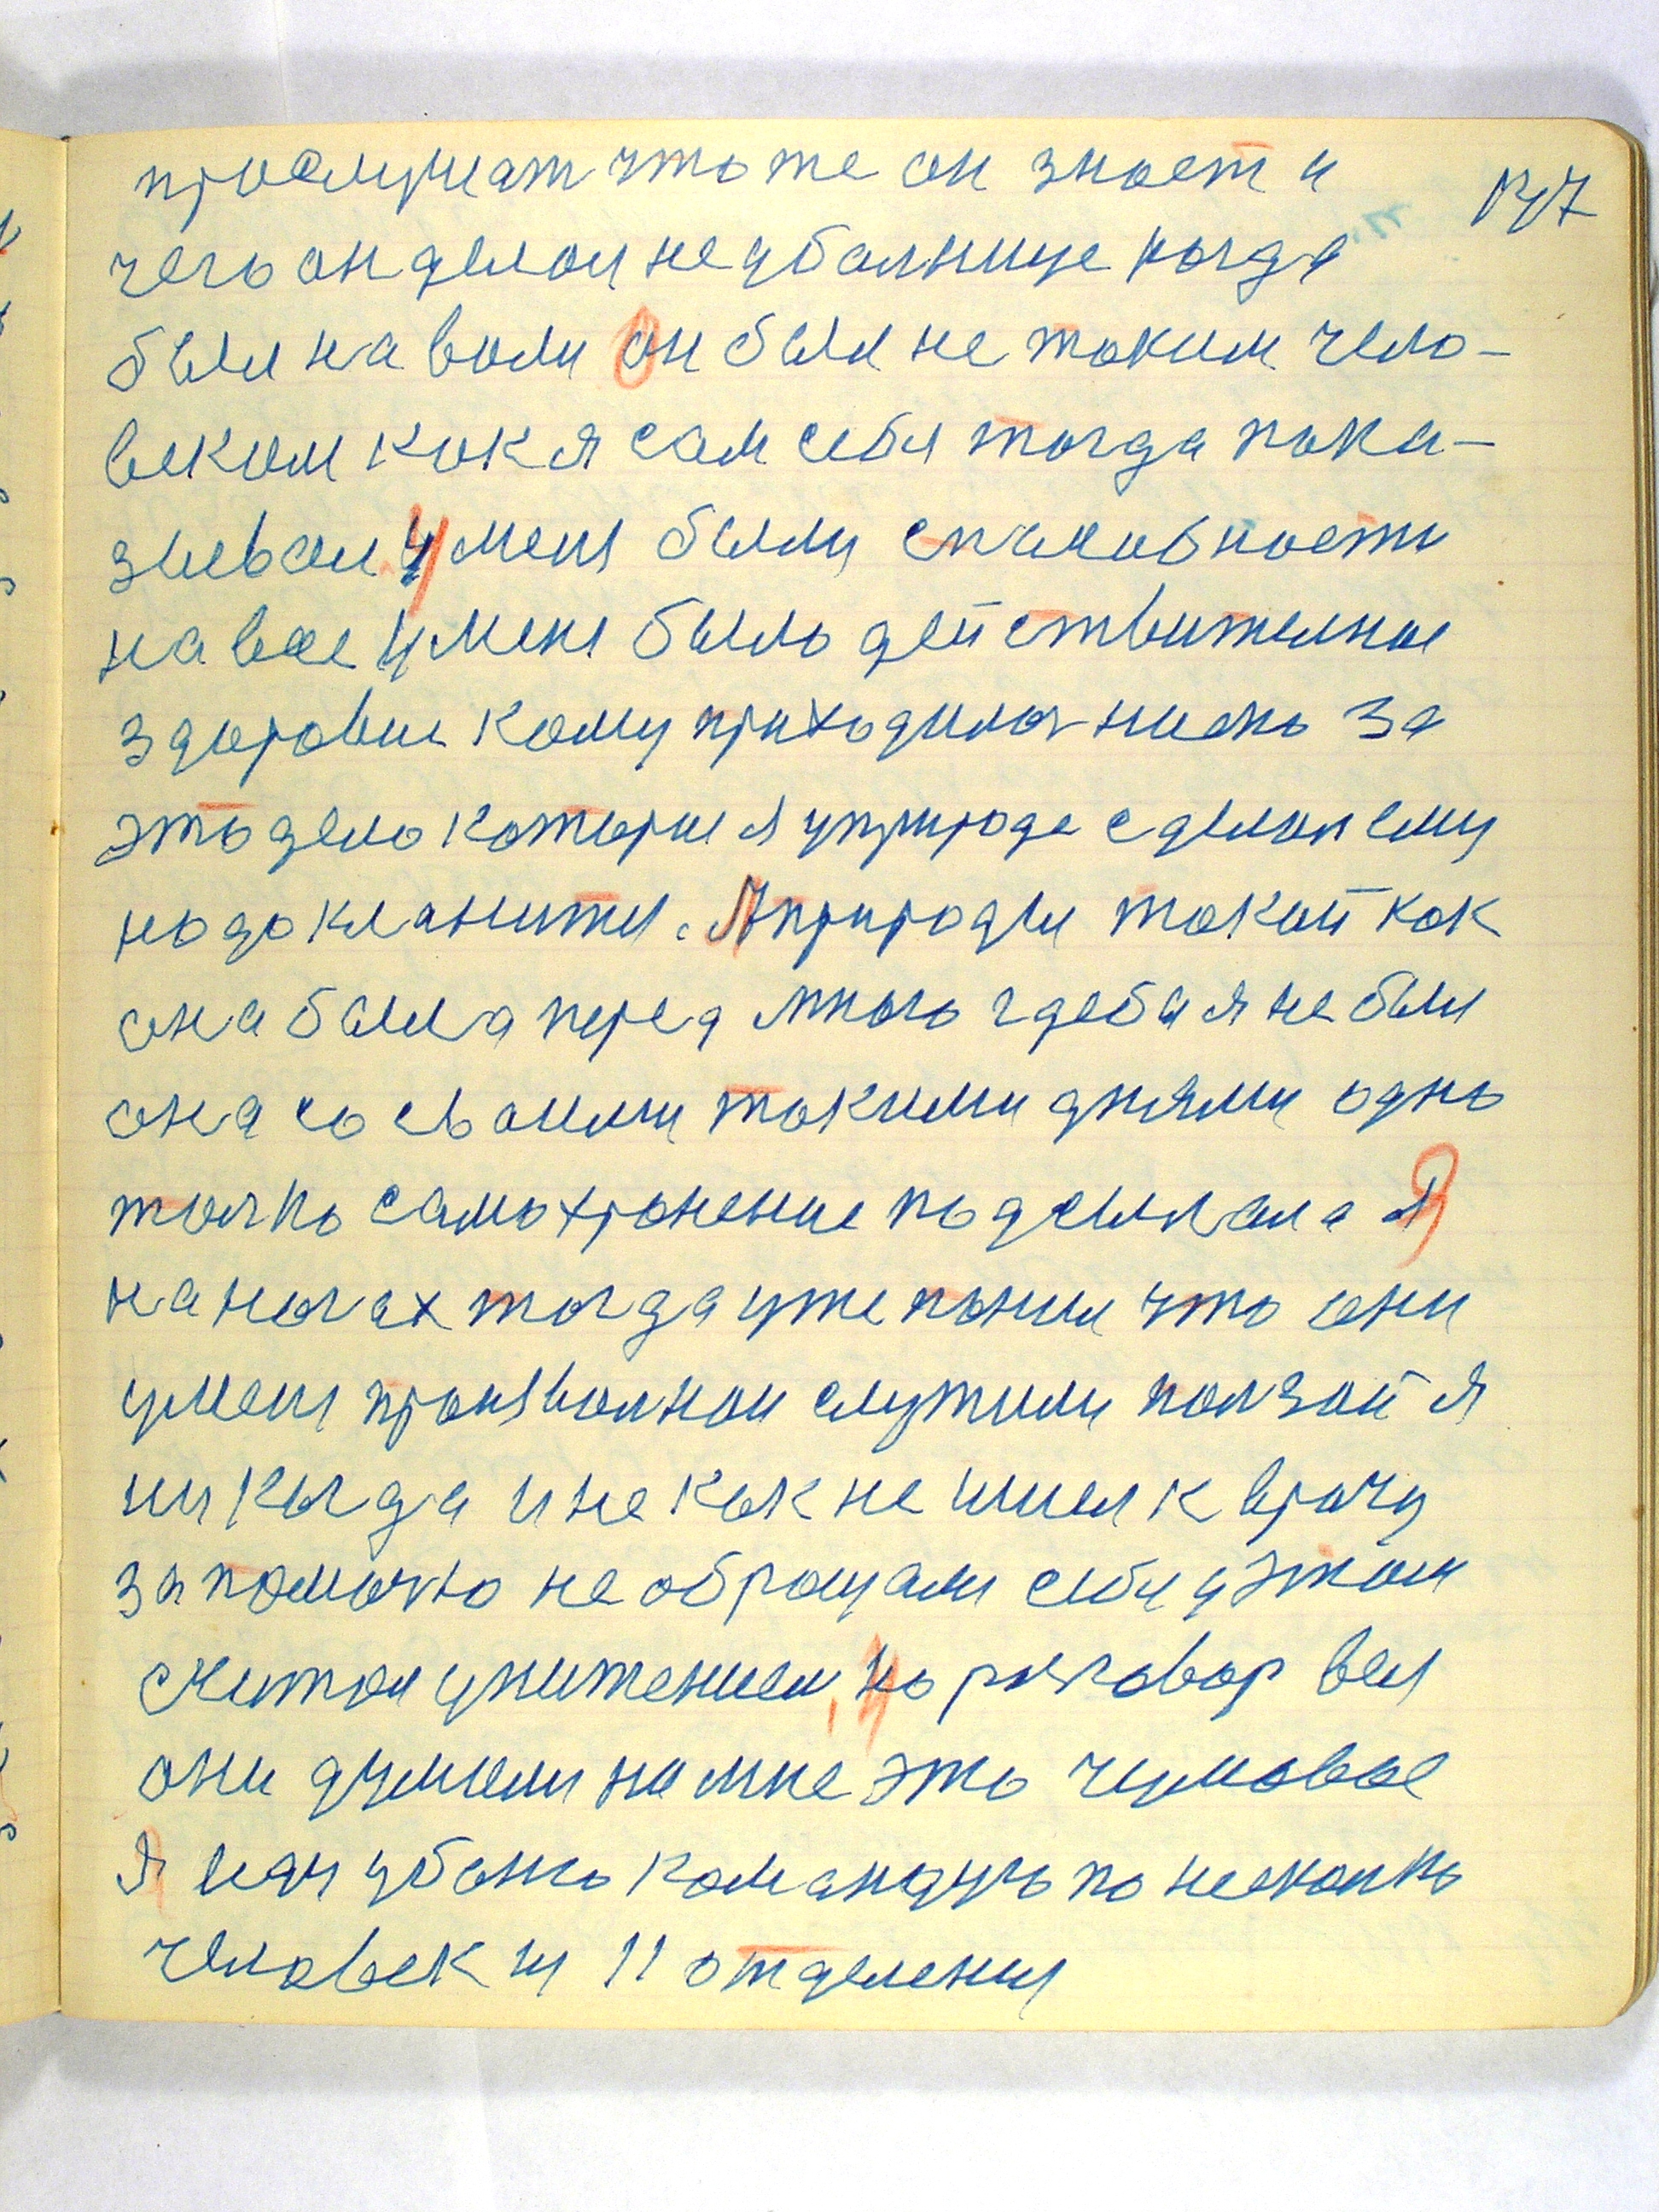 прослушат что же он знает и
147
чего он делол не убольнице когда
был на воли Он был не таким чело-
веком как я сам себя тогда пока-
зывал У меня были способности
на все у меня было действително
здоровие кому приходилось за
это дело которие я уприроде сделал ему
надо кланится. Априроди такой как
она была перед мною где бы я не был
она со своими такими днями одно
толко самохронение подсылала Я
на ногах тогда уже понил что они
умены произволной служили ползой я
никогда и не как не шиел к врачу
за помочю не обращал себя у этом
считол унижением, но разговор вел
они думали на мне это чумовое
Я веду убаню командую по несколко
человек из 11 отделения